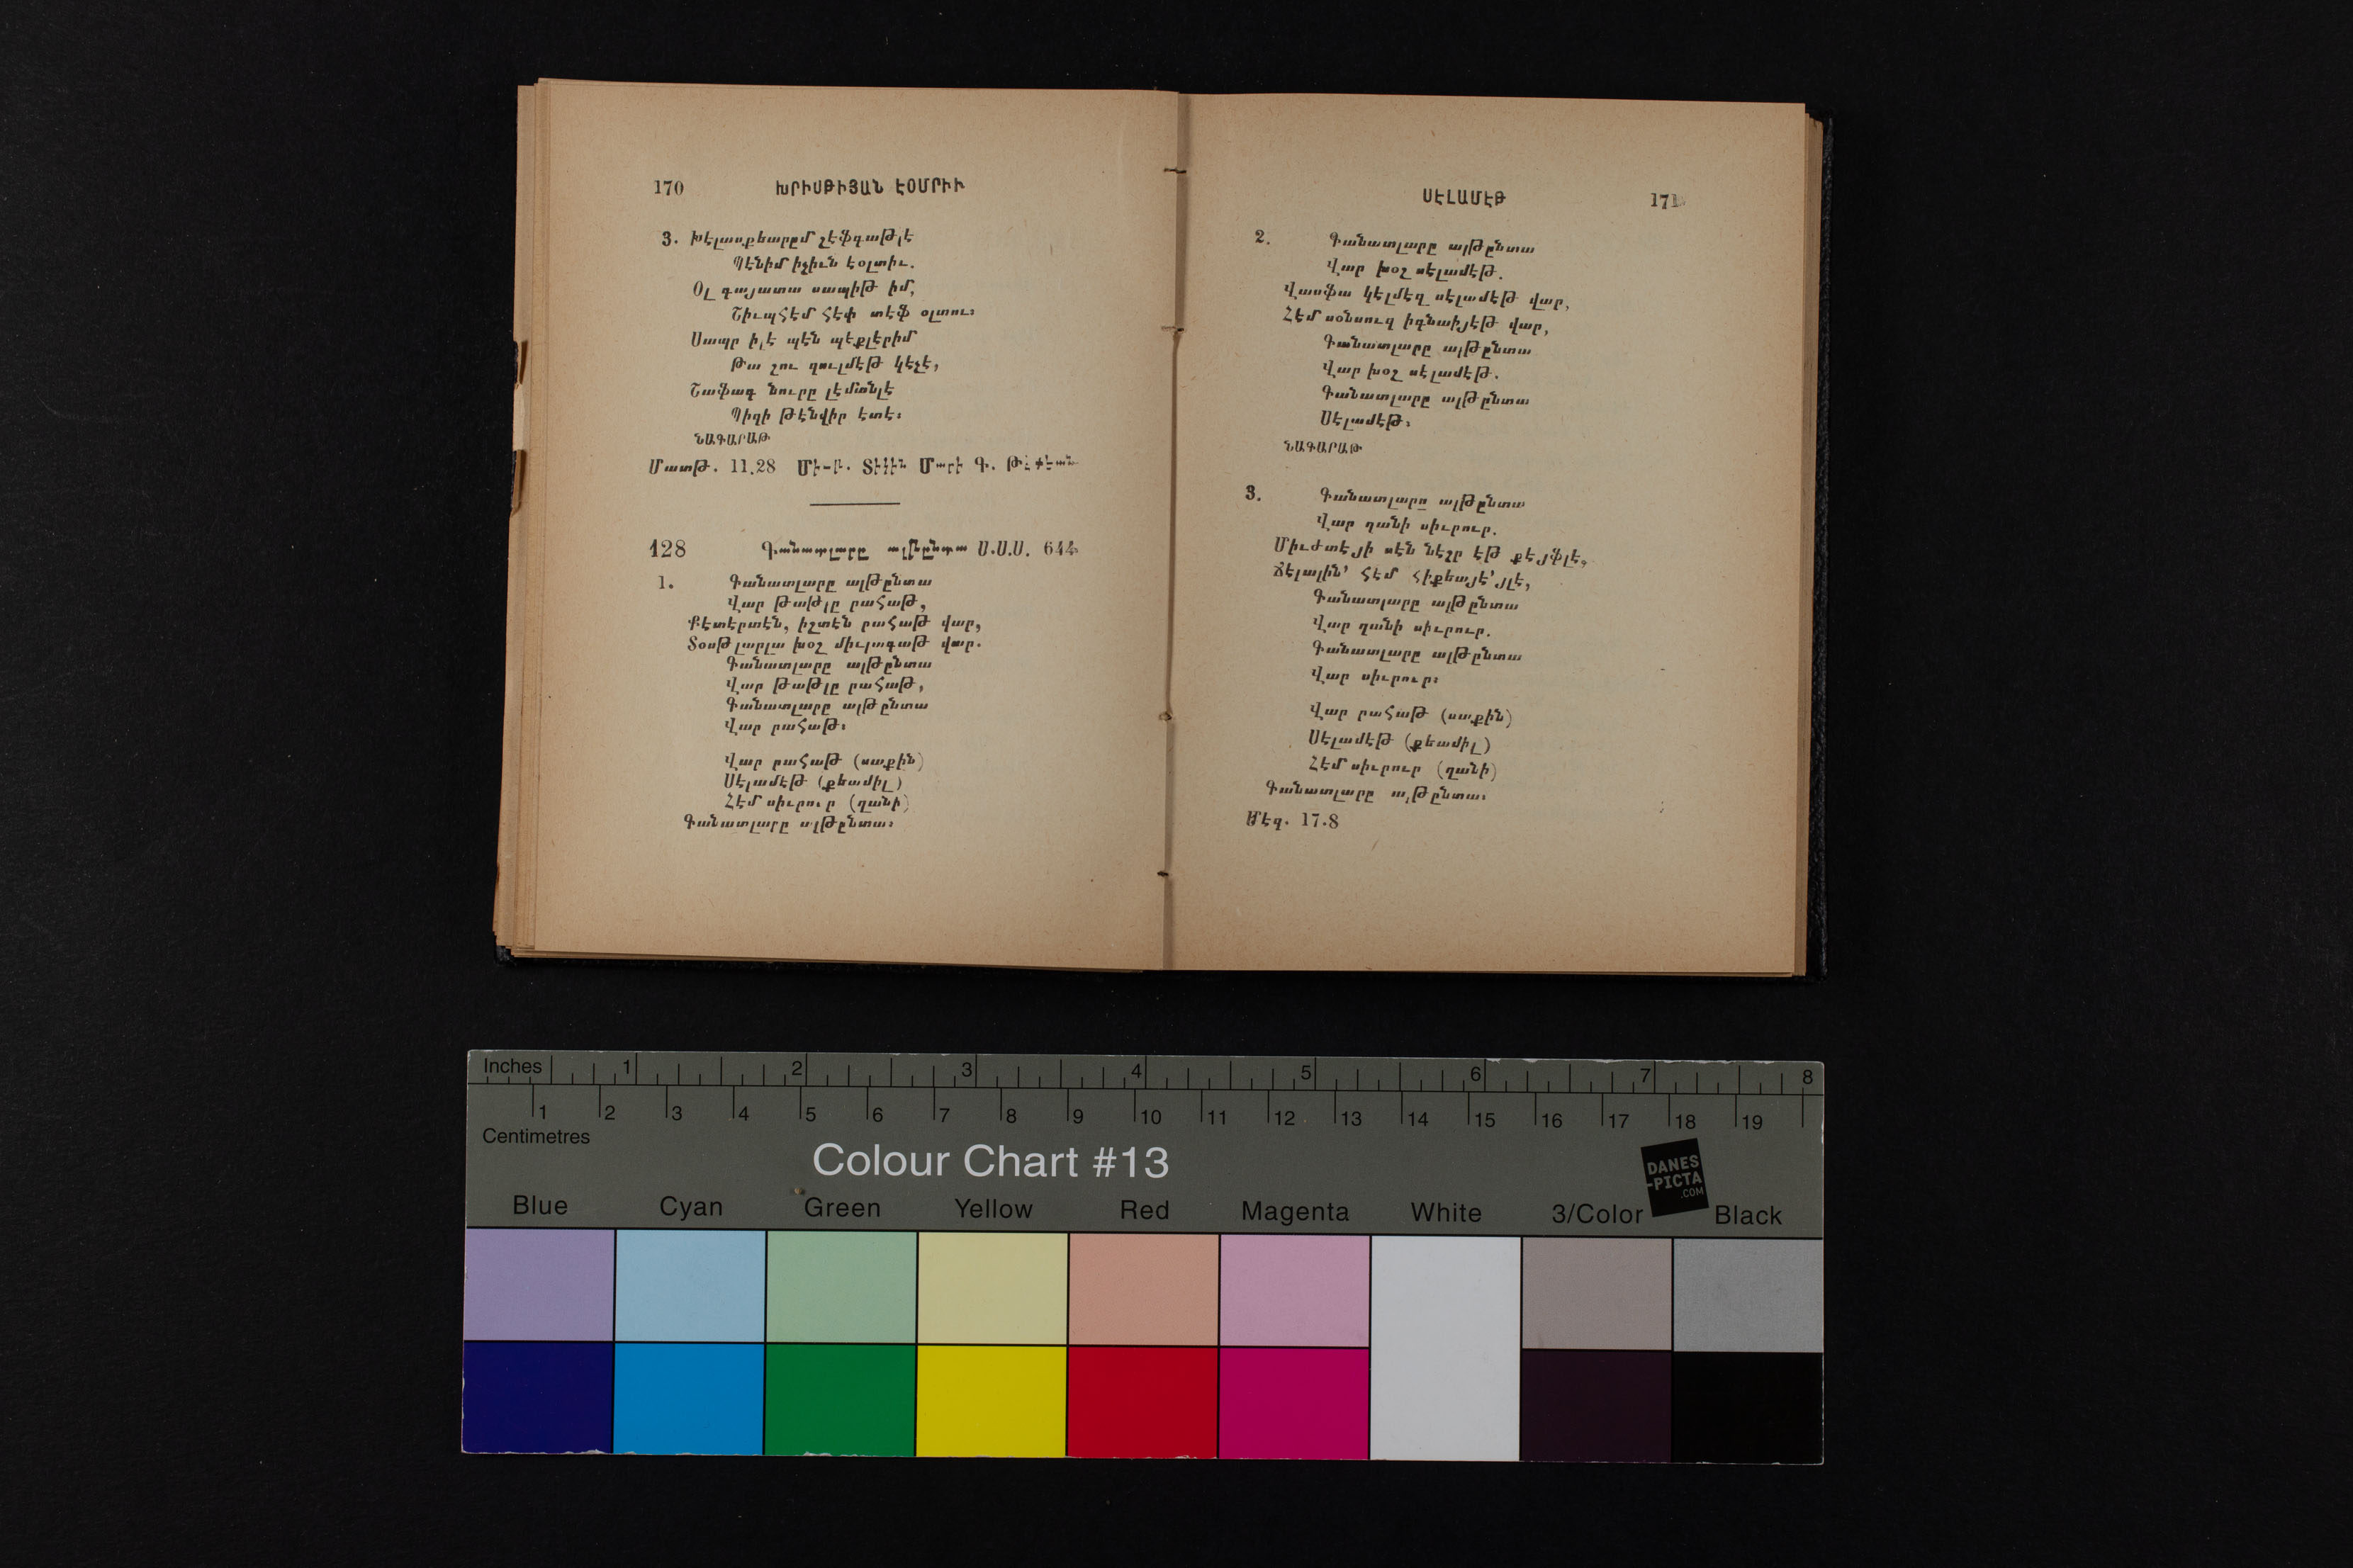 170 ԽՐԻՍԹԻՅԱՆ ԷՕՄՐԻՒ
3. Խէլասքեարըմ չէֆգաթլէ
Պէնիմ իչիւն էօլտիւ.
Օլ գայատա սապիթ իմ,
Շիւպհէմ հէփ տէֆ օլտու։
Սապր իլէ պէն պէքլէրիմ
Թա շու զուլմէթ կէչէ,
Շաֆագ նուրը լէմանլէ
Պիզի թէնվիր էտէ։
ՆԱԳԱՐԱԹ
Մատթ. 11.28 Տիկին Մարի Գ.
128 Գանատլարը ալթընտա Ս.Ս.Ս. 644
1. Գանատլարը ալթընտա
Վար թաթլը րահաթ,
Քէտէրտէն, իշտէն րահաթ վար,
Տօսթլարլա խօշ միւլագաթ վար.
Գանատլարը ալթընտա
Վար թաթլը րահաթ,
Գանատլարը ալթընտա
Վար րահաթ։
Վար րահաթ (սաքին)
Սէլամէթ (քեամիլ)
Հէմ սիւրուր (ղանի)
Գանատլարը ալթընտա։
ՍԷԼԱՄԷԹ 171
2. Գանատլարը ալթընտա
Վար խօշ սէլամէթ.
Վասֆա կէլմէզ սէլամէթ վար,
Հէմ սօնսուզ իգնաիյէթ վար,
Գանատլարը ալթընտա
Վար խօշ սէլամէթ.
Գանատլարը ալթընտա
Սէլամէթ։
ՆԱԳԱՐԱԹ
3. Գանատլարը ալթընտա
Վար ղանի սիւրուր.
Միւժտէյի սէն նէշր էթ քէյֆլէ,
Ճէլալին՚ հէմ հիքեայէ՚յլէ,
Գանատլարը ալթընտա
Վար ղանի սիւրուր.
Գանատլարը ալթընտա
Վար սիւրուր։
Վար րահաթ (սաքին)
Սէլամէթ (քեամիլ)
Հէմ սիւրուր (ղանի)
Գանատլարը ալթընտա։
Մէզ. 17.8
Inches 1 2 3 4 5 6 7 8
1 2 3 4 5 6 7 8 9 10 11 12 13 14 15 16 17 18 19
Centimetres
Colour Chart #13
DANES
-PICTA
.COM
Blue Cyan Green Yellow Red Magenta White 3/Color Black